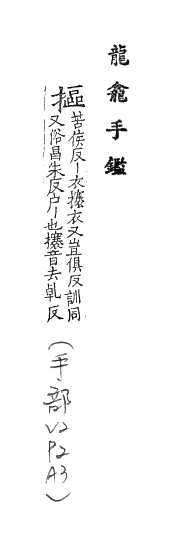 龍龕手鑑
摳苦侯反丨衣攐衣又豈俱反訓同
又俗昌朱反户丨也攐音去乹反
(手部V2P2A3)